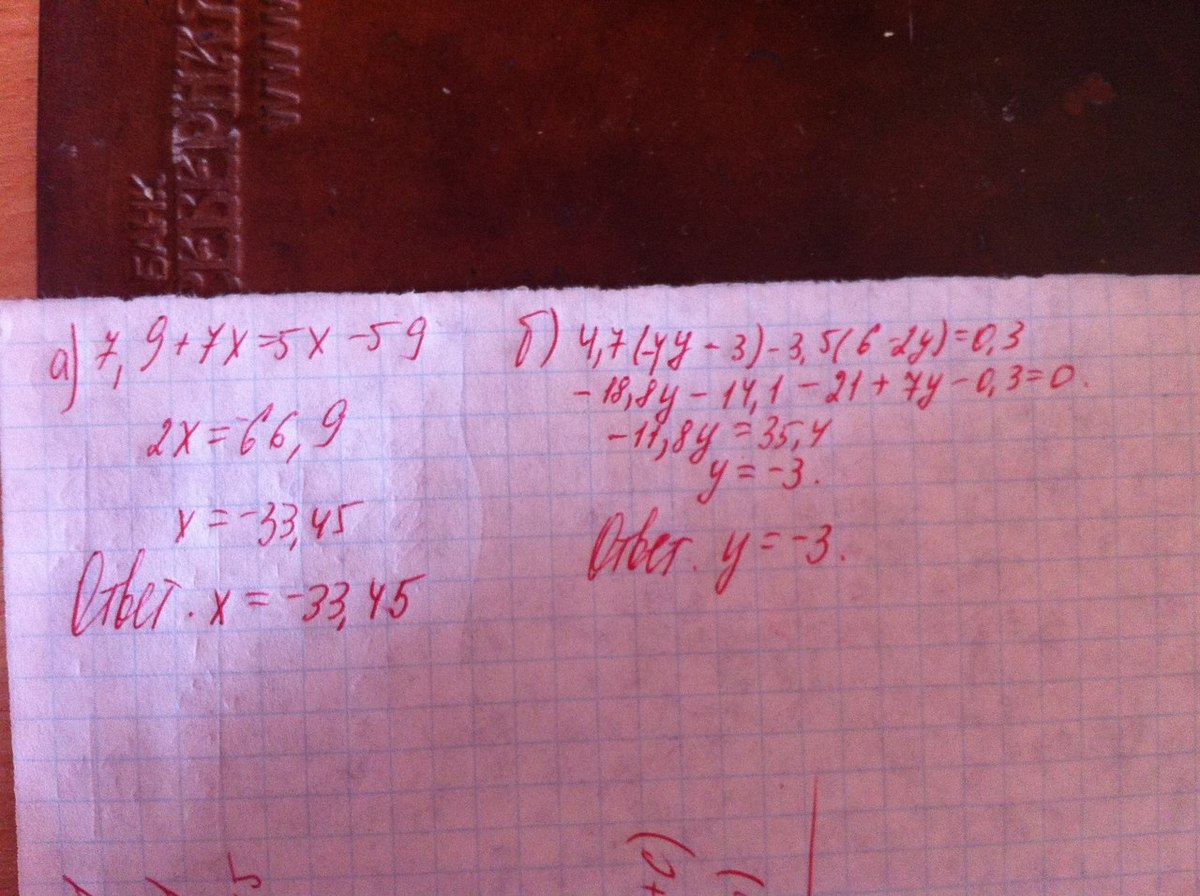 БАНК
WWW
а) 7,9+7x=5x-59
2x=-66,9
x=-33,45
Ответ. x=-33,45
б) 4,7(-4y-3)-3,5(6-2y)=0,3
-18,8y-14,1-21+7y-0,3=0.
-11,8y=35,4
y=-3.
Ответ. y=-3.